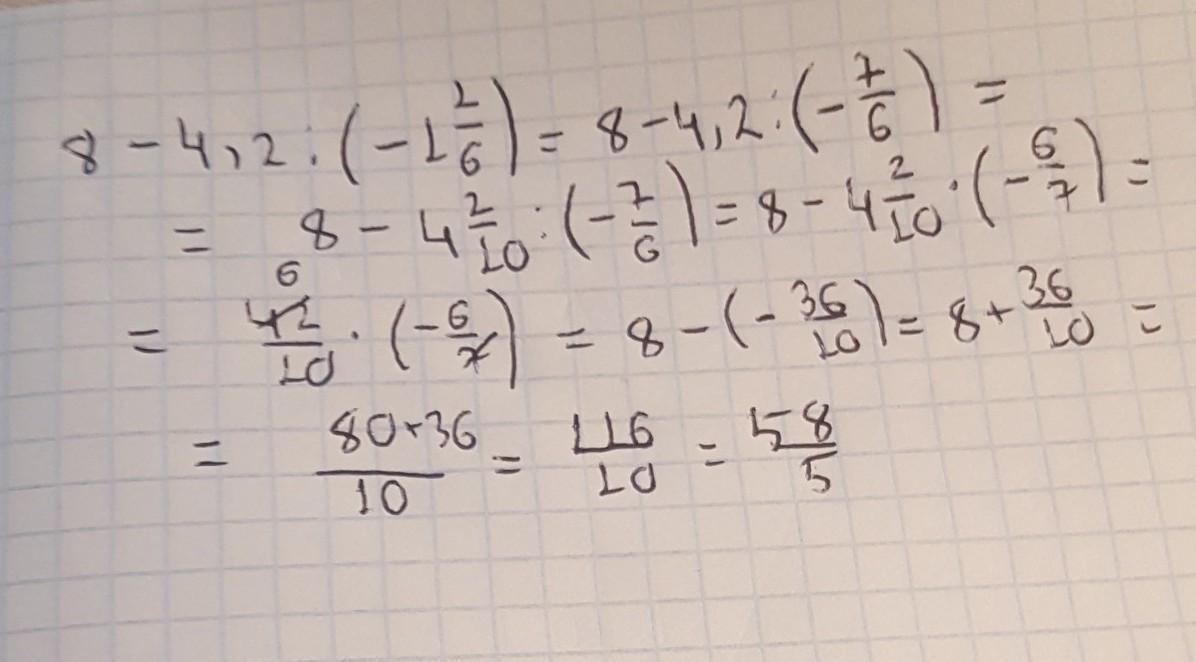 8 - 4,2 : (-1 1/6) = 8 - 4,2 : (-7/6) =
= 8 - 4 2/10 : (-7/6) = 8 - 4 2/10 · (-6/7) =
6
= 42/10 · (-6/7) = 8 - (-36/10) = 8 + 36/10 =
= 80+36/10 = 116/10 = 58/5